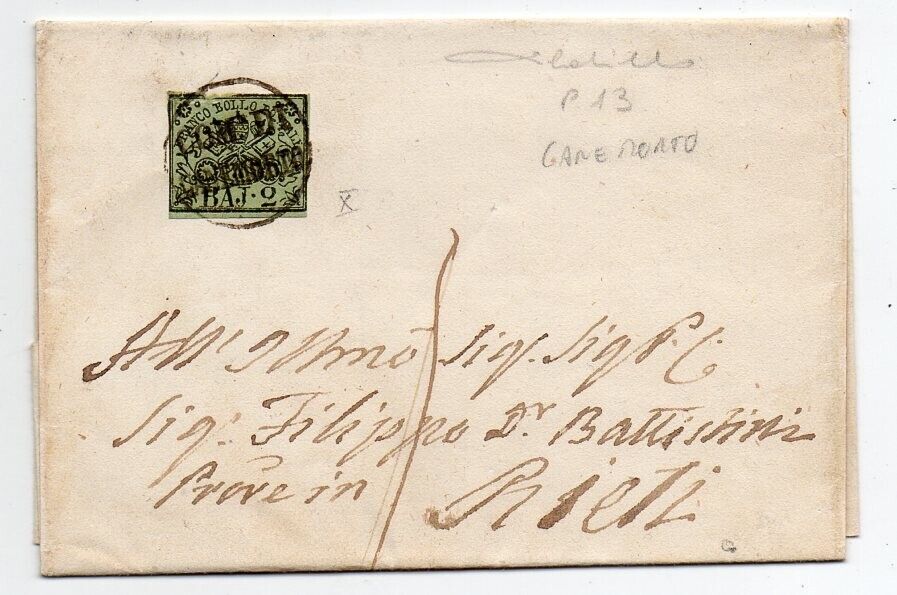 P 13
CANEMORTO
FRANCO BOLLO
BAJ. 2
X
All' Illmo Sig. Sig. P. C.
Sig. Filippo Dr. Battistini
Prore in Rieti